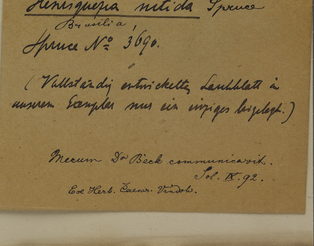 Henriquezia nitida Spruce
Brasilia,
Spruce No 3690.
(Vollständig entwickeltes Laubblatt in
unserem Exemplar nur ein einziges beigelegt.)
Mecum Dr Beck communicavit.
Sol. IX. 92.
Ex Herb. Caesar. Vindob.